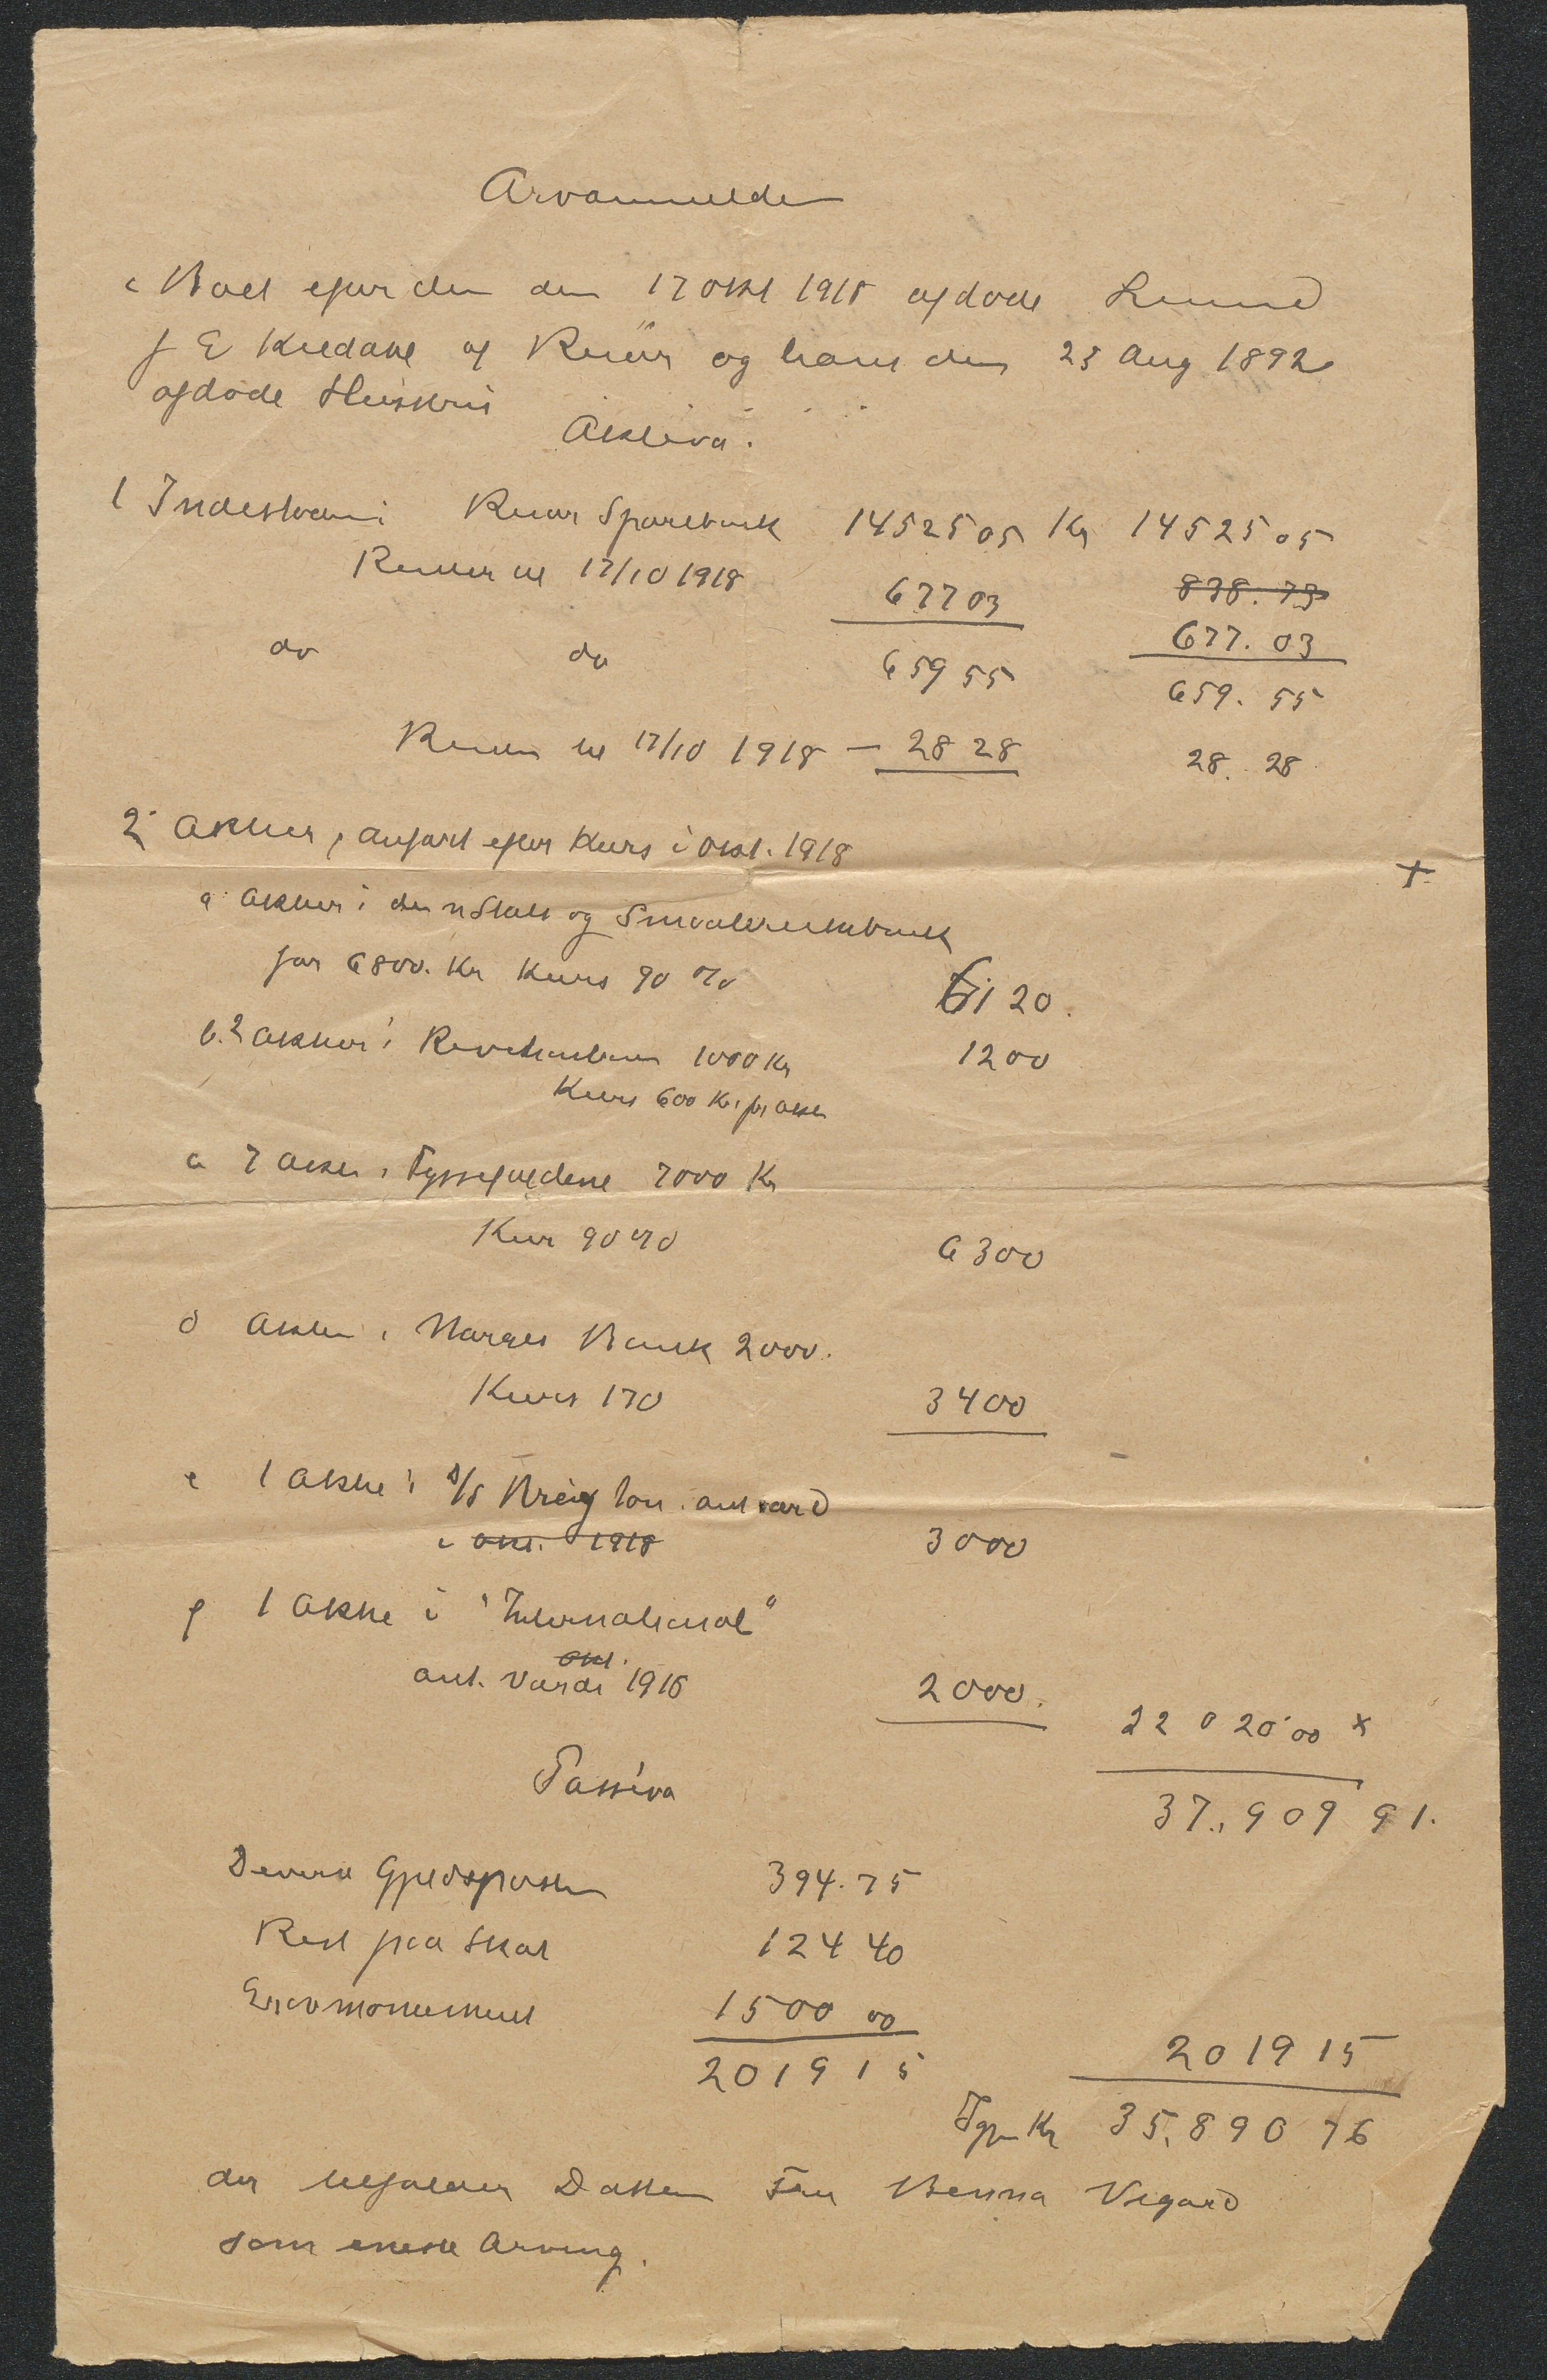 Arvanmelde
i Boet efter den den 17 okt 1918 afdøde Lensmd
J E Kvedahl af Risør og hans den 23 Aug 1892
afdøde Hustru
Aktiva.
1 Indestaaende i Risør Sparebank 14525 05 Kr 14525 05
Renter til 17/10 1918 677 03 838.73
677.03
do do 659 55 659.55
Renter til 17/10 1918 — 28 28 28.28
2 Aktier, anført efter Kurs i Okt. 1918
+
a Aktier i den n Stats og Smaabrugbank
for 6800. Kr Kurs 90 % 6120.
b. 2 Aktier i 1000 Kr 1200
Kurs 600 Kr. pr Aktie
c 7 Aktier i Tyssefaldene 7000 Kr
Kurs 90 % 6300
d Aktier i Norges Bank 2000.
Kurs 170 3400
e 1 Aktie i A/S ant. værd
i Okt. 1918 3000
f 1 Aktie i "International"
okt.
ant. Værdi 1918 2000. 22 020 00 x
Passiva 37.,909 91.
Diverse Gjeldsposter 394.75
Rest paa Skat 124 40
Gravmonument 1500 00
2019 15 2019 15
Igjen Kr 35,890 76
der tilfalder Datteren Fru Benna Vegard
som eneste Arving.